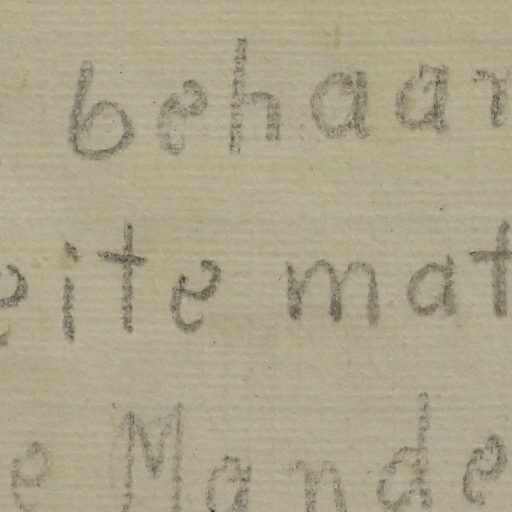 behaar
eite mat
e Mande